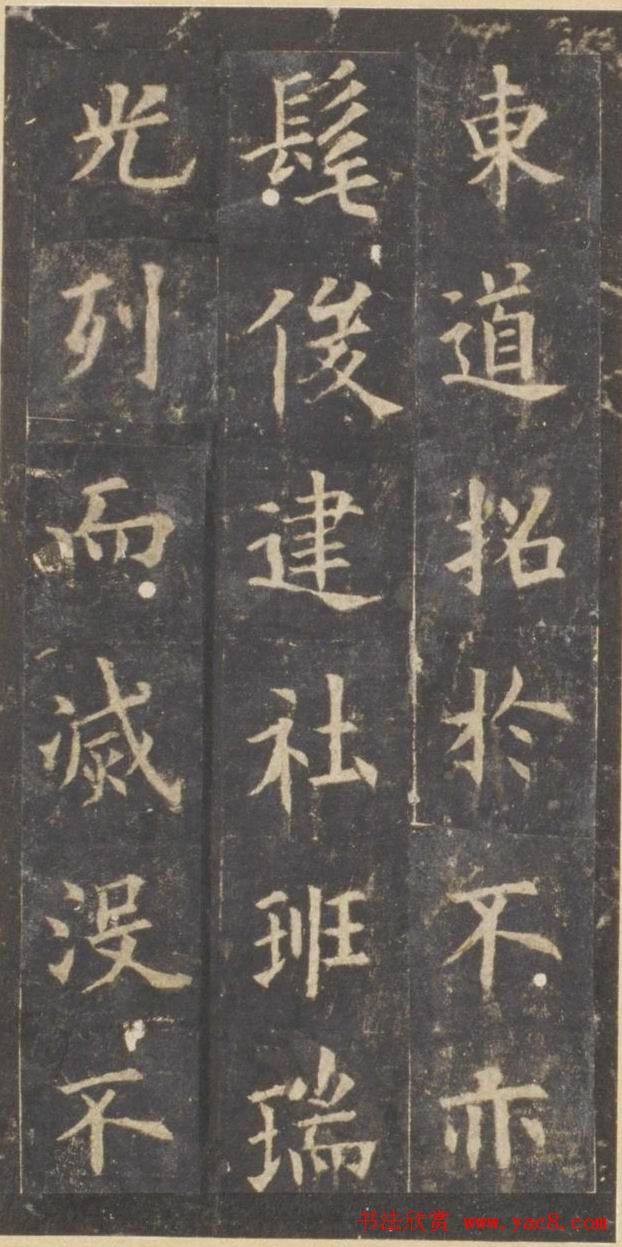 東道招於不亦
髦俊建社班瑞
光列而滅沒不
书法欣赏 www.yac8.com